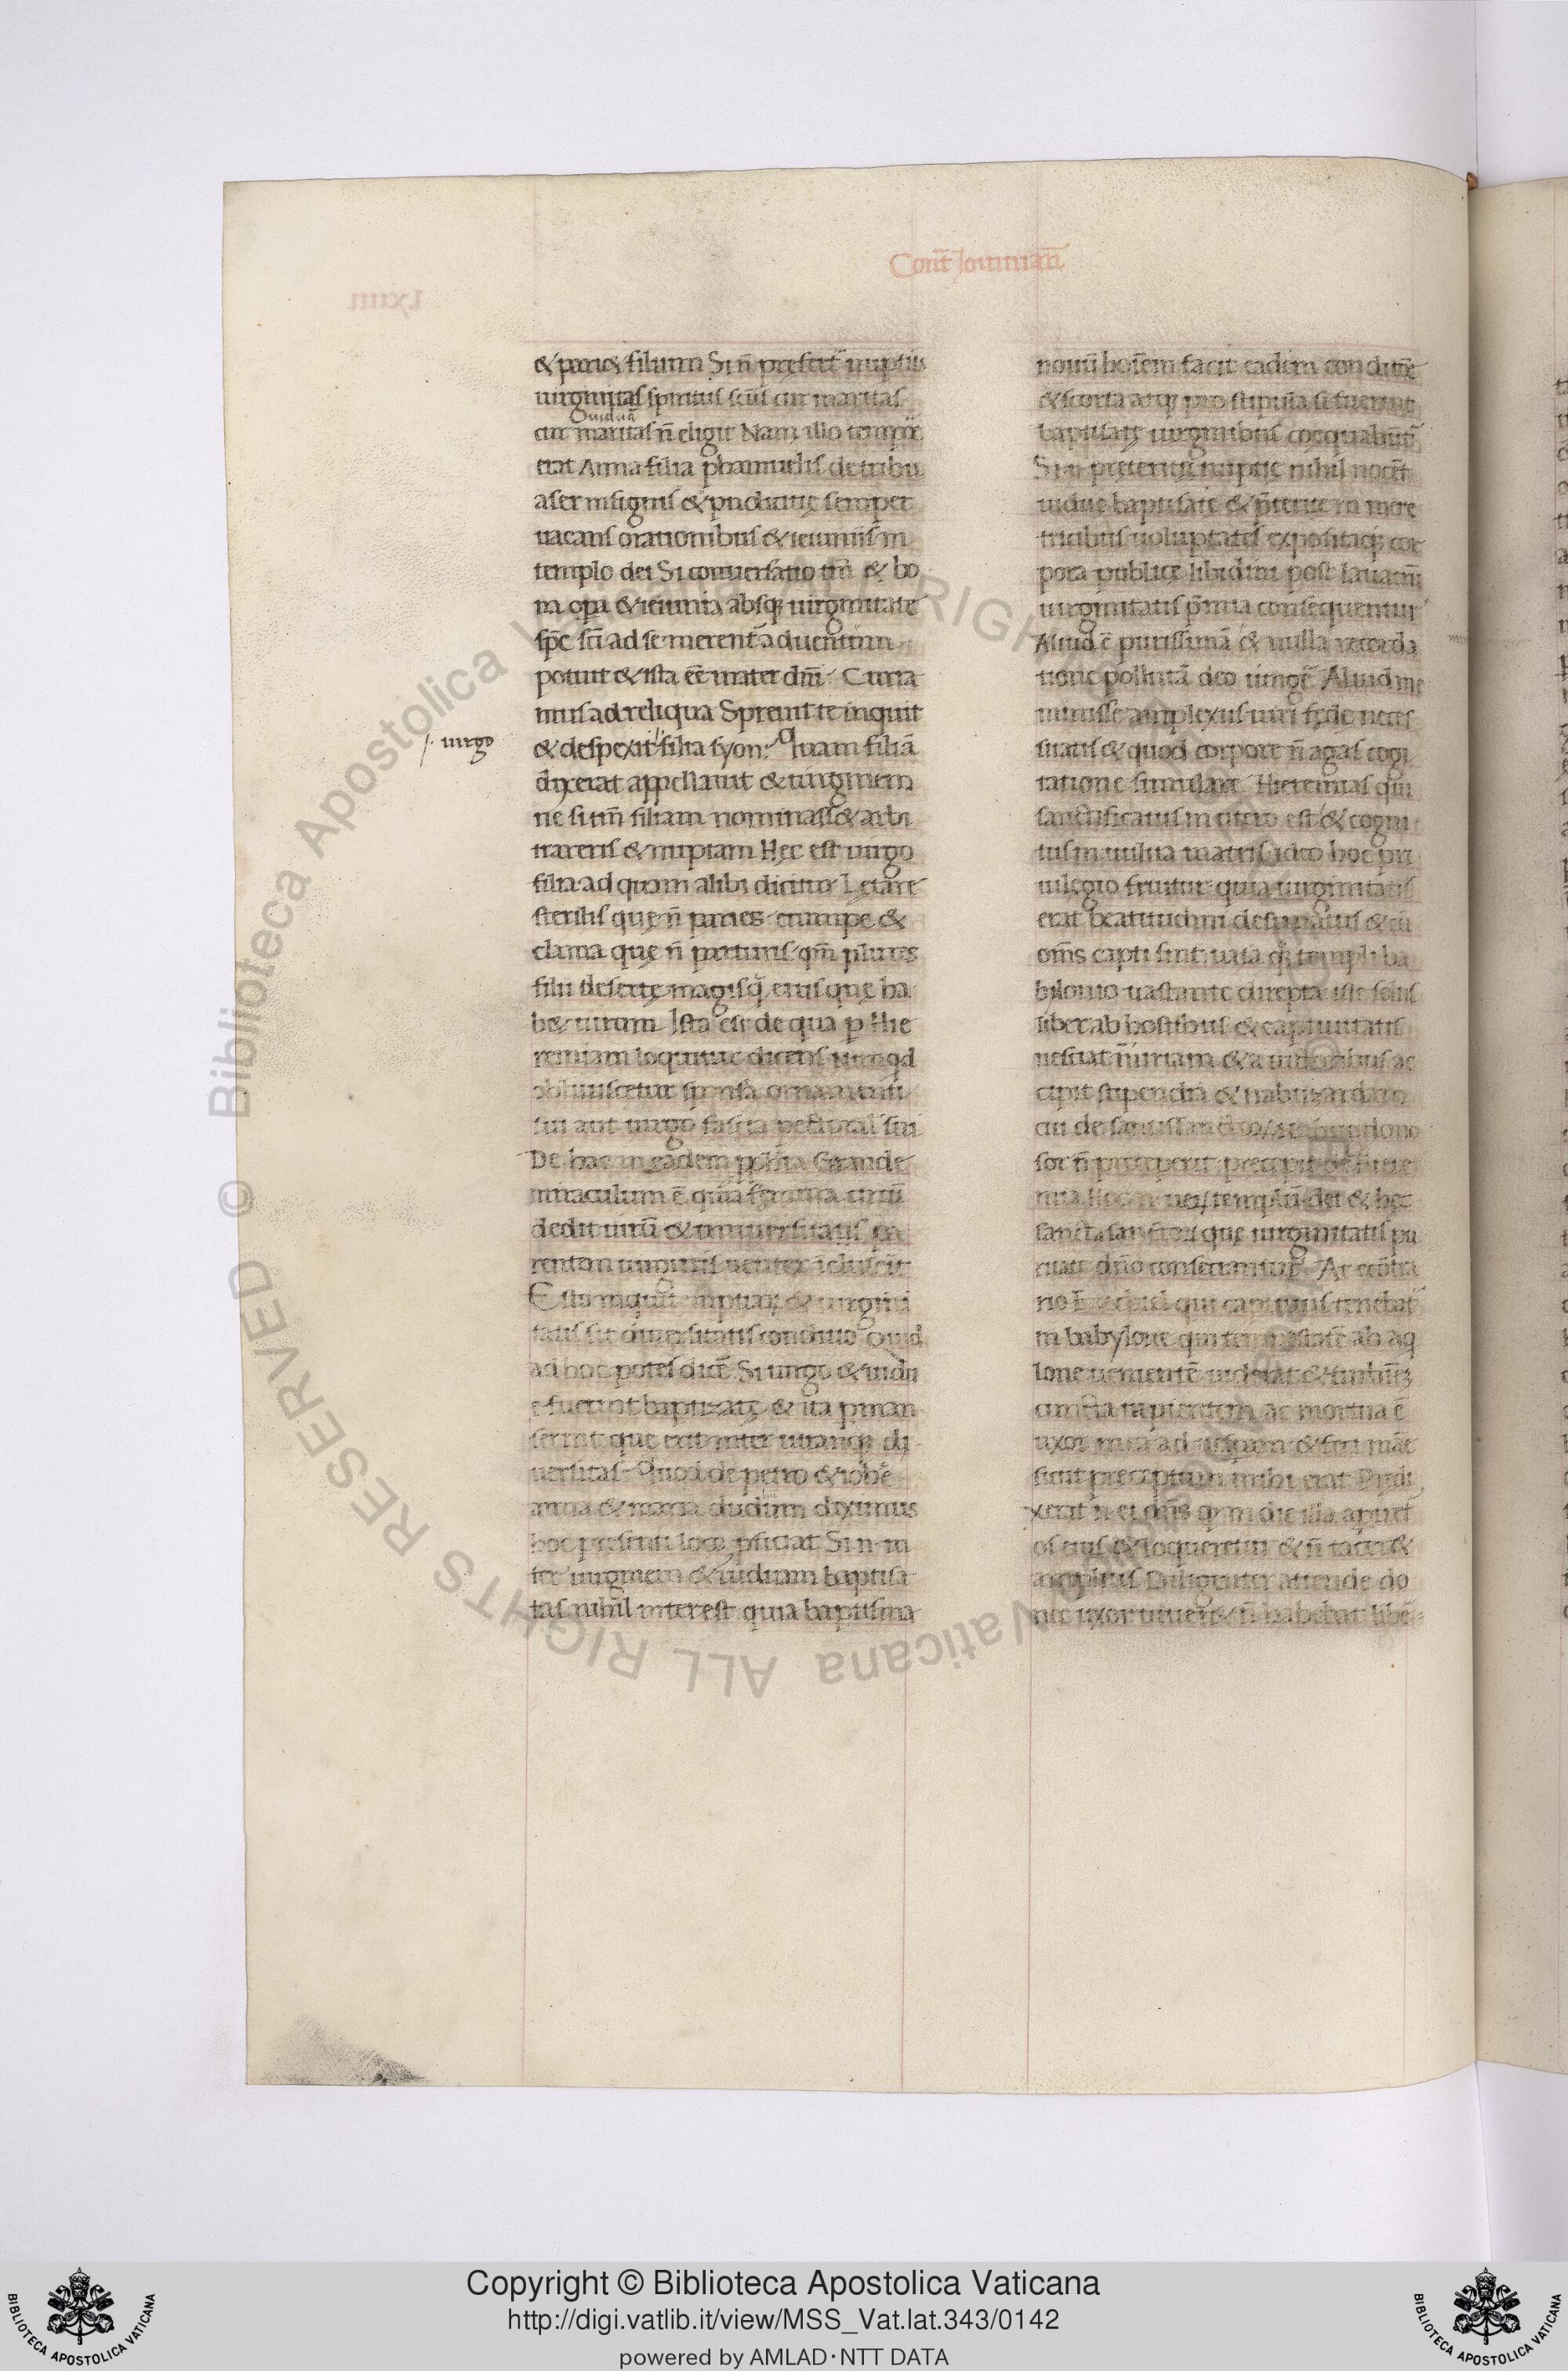 Cont̄ Iouinian̄
& pari& filium Si n̄ prefert̄ nuptiis
uirginitas spiritus sc̄us cur maritas
Ouiduā
cur maritas n̄ eligit Nam illo tempor̄
erat Anna filia phanuelis de tribu
aser insignis & pudicitię semper
uacans orationibus & ieiuniis in
templo dei Si conuersatio tm̄ & bo
na opa & ieiunia absq; uirginitate
sp̄c sc̄i ad se merent̄ aduentum
potuit & ista eē mater dn̄i Curra
mus ad reliqua Spreuit te inquit
/. uirgo
& despexit // filia syon. Quam filiā
dixerat appellauit & uirginem
ne si tm̄ filiam nominass& arbi
trareris & nuptam Hęc est uirgo
filia ad quam alibi dicitur Letare
sterilis quę n̄ paries erumpe &
clama quę n̄ parturis qm̄ plures
filii desertę magis q̄ eius quę ha
b& uirum Ista est de qua p Hie
remiam loquitur dicens nunqd
obliuiscetur sponsa ornamenti
sui aut uirgo fascia pectoral sui
De hac in eadem pph̄ia Grande
miraculum ē quia femina circū
dedit uirū & uniuersitatis pa
rentem uirginis uenter īcluserit
Esto inquit nuptiaꝝ & uirgini
tatis sit diuersitatis condicio Quid
ad hoc potes dicē Si uirgo & uidu
e fuerint baptizatę & ita pman
serint quę erit inter utranq; di
uersitas Quod de petro & ioh̄e
anna & maria dudum diximus
hoc presenti loco pficiat Si n̄ in
ter uirginem & uiduam baptisa
tas nihil interest quia baptisma
nouū hoīem facit eadem conditōe
& scorta atq; prostipula si fuerint
baptisatę uirginibus coęquabunt̄
Si n̄ pręteritę nuptię nihil nocēt
uiduę baptisatę & p̄teritę in mere
tricibus uoluptates expositaq; cor
pora publicę libidini post lauacrū
uirginitatis p̄mia consequentur
Aliud ē purissimā & nulla recorda
tione pollutā deo iungē Aliud me
minisse amplexus uiri fęde neces
sitatis & quod corpore n̄ agas cogi
tatione simulare Hieremias qui
sanctificatus in utero est & cogni
tus in uulua matris ideo hoc pri
uilegio fruitur quia uirginitatis
erat beatitudini destinatus & cū
om̄s capti sint uasa q; templi ba
bilonio uastante direpta iste solus
liber ab hostibus & captiuitatis
nesciat n̄iuriam & a uictoribus ac
cipit stipendia & nabuzardam
sor n̄ preceperit precepit de hiere
mia Hoc n̄ ueꝝ templū dei & hęc
sancta sanctoꝝ quę uirginitatis pu
ritate dn̄o consecrantur At econtra
rio Ezechiel qui captiuus tenebat̄
in babylone qui tempestatē ab aq
lone uenientē uiderat & turbinē
cuncta rapientem ac mortua ē
uxor mea ad uesperam & feci mane
sicut preceptum mihi erat Predi
xerat n̄ ei dn̄s q̄ in die illa apiret̄
os eius & loqueretur & n̄ tacer&
amplius Diligenter attende do
nec uxor uiuer& n̄ habebat libē
Copyright © Biblioteca Apostolica Vaticana
http://digi.vatlib.it/view/MSS_Vat.lat.343/0142
powered by AMLAD·NTT DATA
© Biblioteca Apostolica Vaticana ALL RIGHTS RESERVED